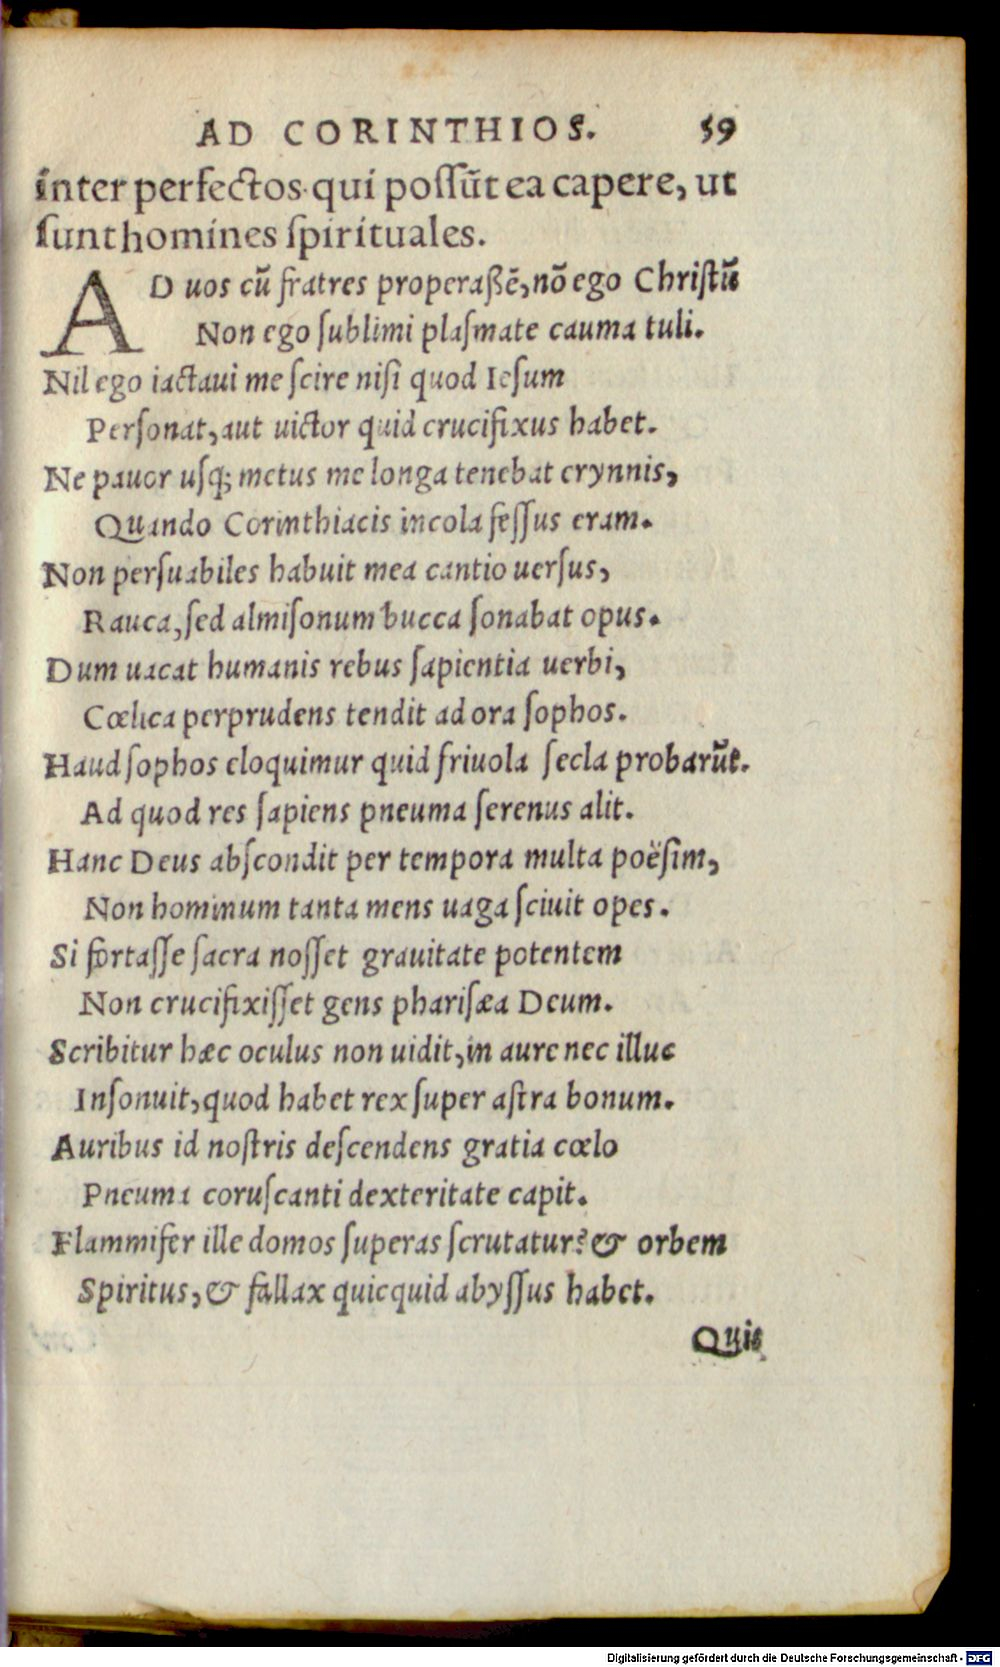 AD CORINTHIOS. 59
inter perfectos qui poſſūt ea capere, ut
ſunt homines ſpirituales.
AD uos cū fratres properaßē, nō ego Chriſtū
Non ego ſublimi plaſmate cauma tuli.
Nil ego iactaui me ſcire niſi quod Ieſum
Perſonat, aut uictor quid crucifixus habet.
Ne pauor uſq; metus me longa tenebat erynnis,
Quando Corinthiacis incola feſſus eram.
Non perſuabiles habuit mea cantio uerſus,
Rauca, ſed almiſonum bucca ſonabat opus.
Dum uacat humanis rebus ſapientia uerbi,
Cœlica perprudens tendit ad ora ſophos.
Haud ſophos eloquimur quid friuola ſecla probarūt.
Ad quod res ſapiens pneuma ſerenus alit.
Hanc Deus abſcondit per tempora multa poëſim,
Non hominum tanta mens uaga ſciuit opes.
Si fortaſſe ſacra noſſet grauitate potentem
Non crucifixiſſet gens phariſæa Deum.
Scribitur hæc oculus non uidit, in aure nec illuc
Inſonuit, quod habet rex ſuper aſtra bonum.
Auribus id noſtris deſcendens gratia cœlo
Pneuma coruſcanti dexteritate capit.
Flammifer ille domos ſuperas ſcrutatur? & orbem
Spiritus, & fallax quicquid abyſſus habet.
Quis
Digitalisierung gefördert durch die Deutsche Forschungsgemeinschaft - DFG